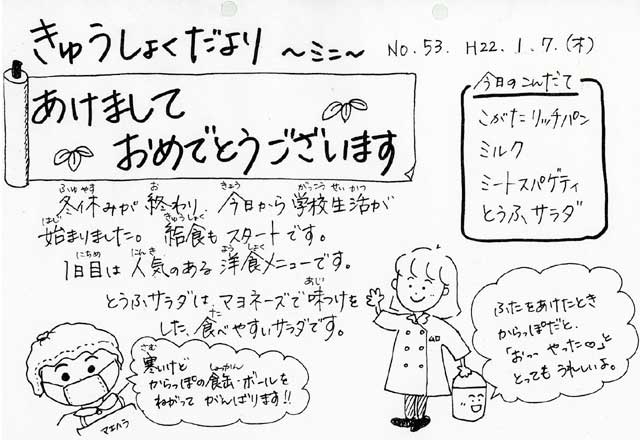 きゅうしょくだより ～ミニ～ No.53. H22.1.7.(木)
あけまして
おめでとうございます
今日のこんだて
こがたリッチパン
ミルク
ミートスパゲティ
とうふサラダ
冬休みが終わり、今日から学校生活が
始まりました。給食もスタートです。
1日目は人気のある洋食メニューです。
とうふサラダは、マヨネーズで味つけを
した、食べやすいサラダです。
寒いけど
からっぽの食缶・ボールを
ねがって がんばります!!
マエハラ
ふたをあけたとき
からっぽだと、
「おっ やった∞」と
とっても うれしいよ。